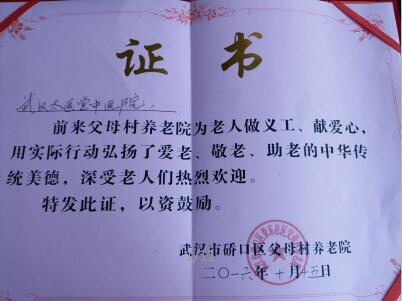 证书
武汉太医堂中医院:
前来父母村养老院为老人做义工、献爱心,
用实际行动弘扬了爱老、敬老、助老的中华传
统美德,深受老人们热烈欢迎。
特发此证,以资鼓励。
武汉市硚口区父母村养老院
二〇一六年十月十五日